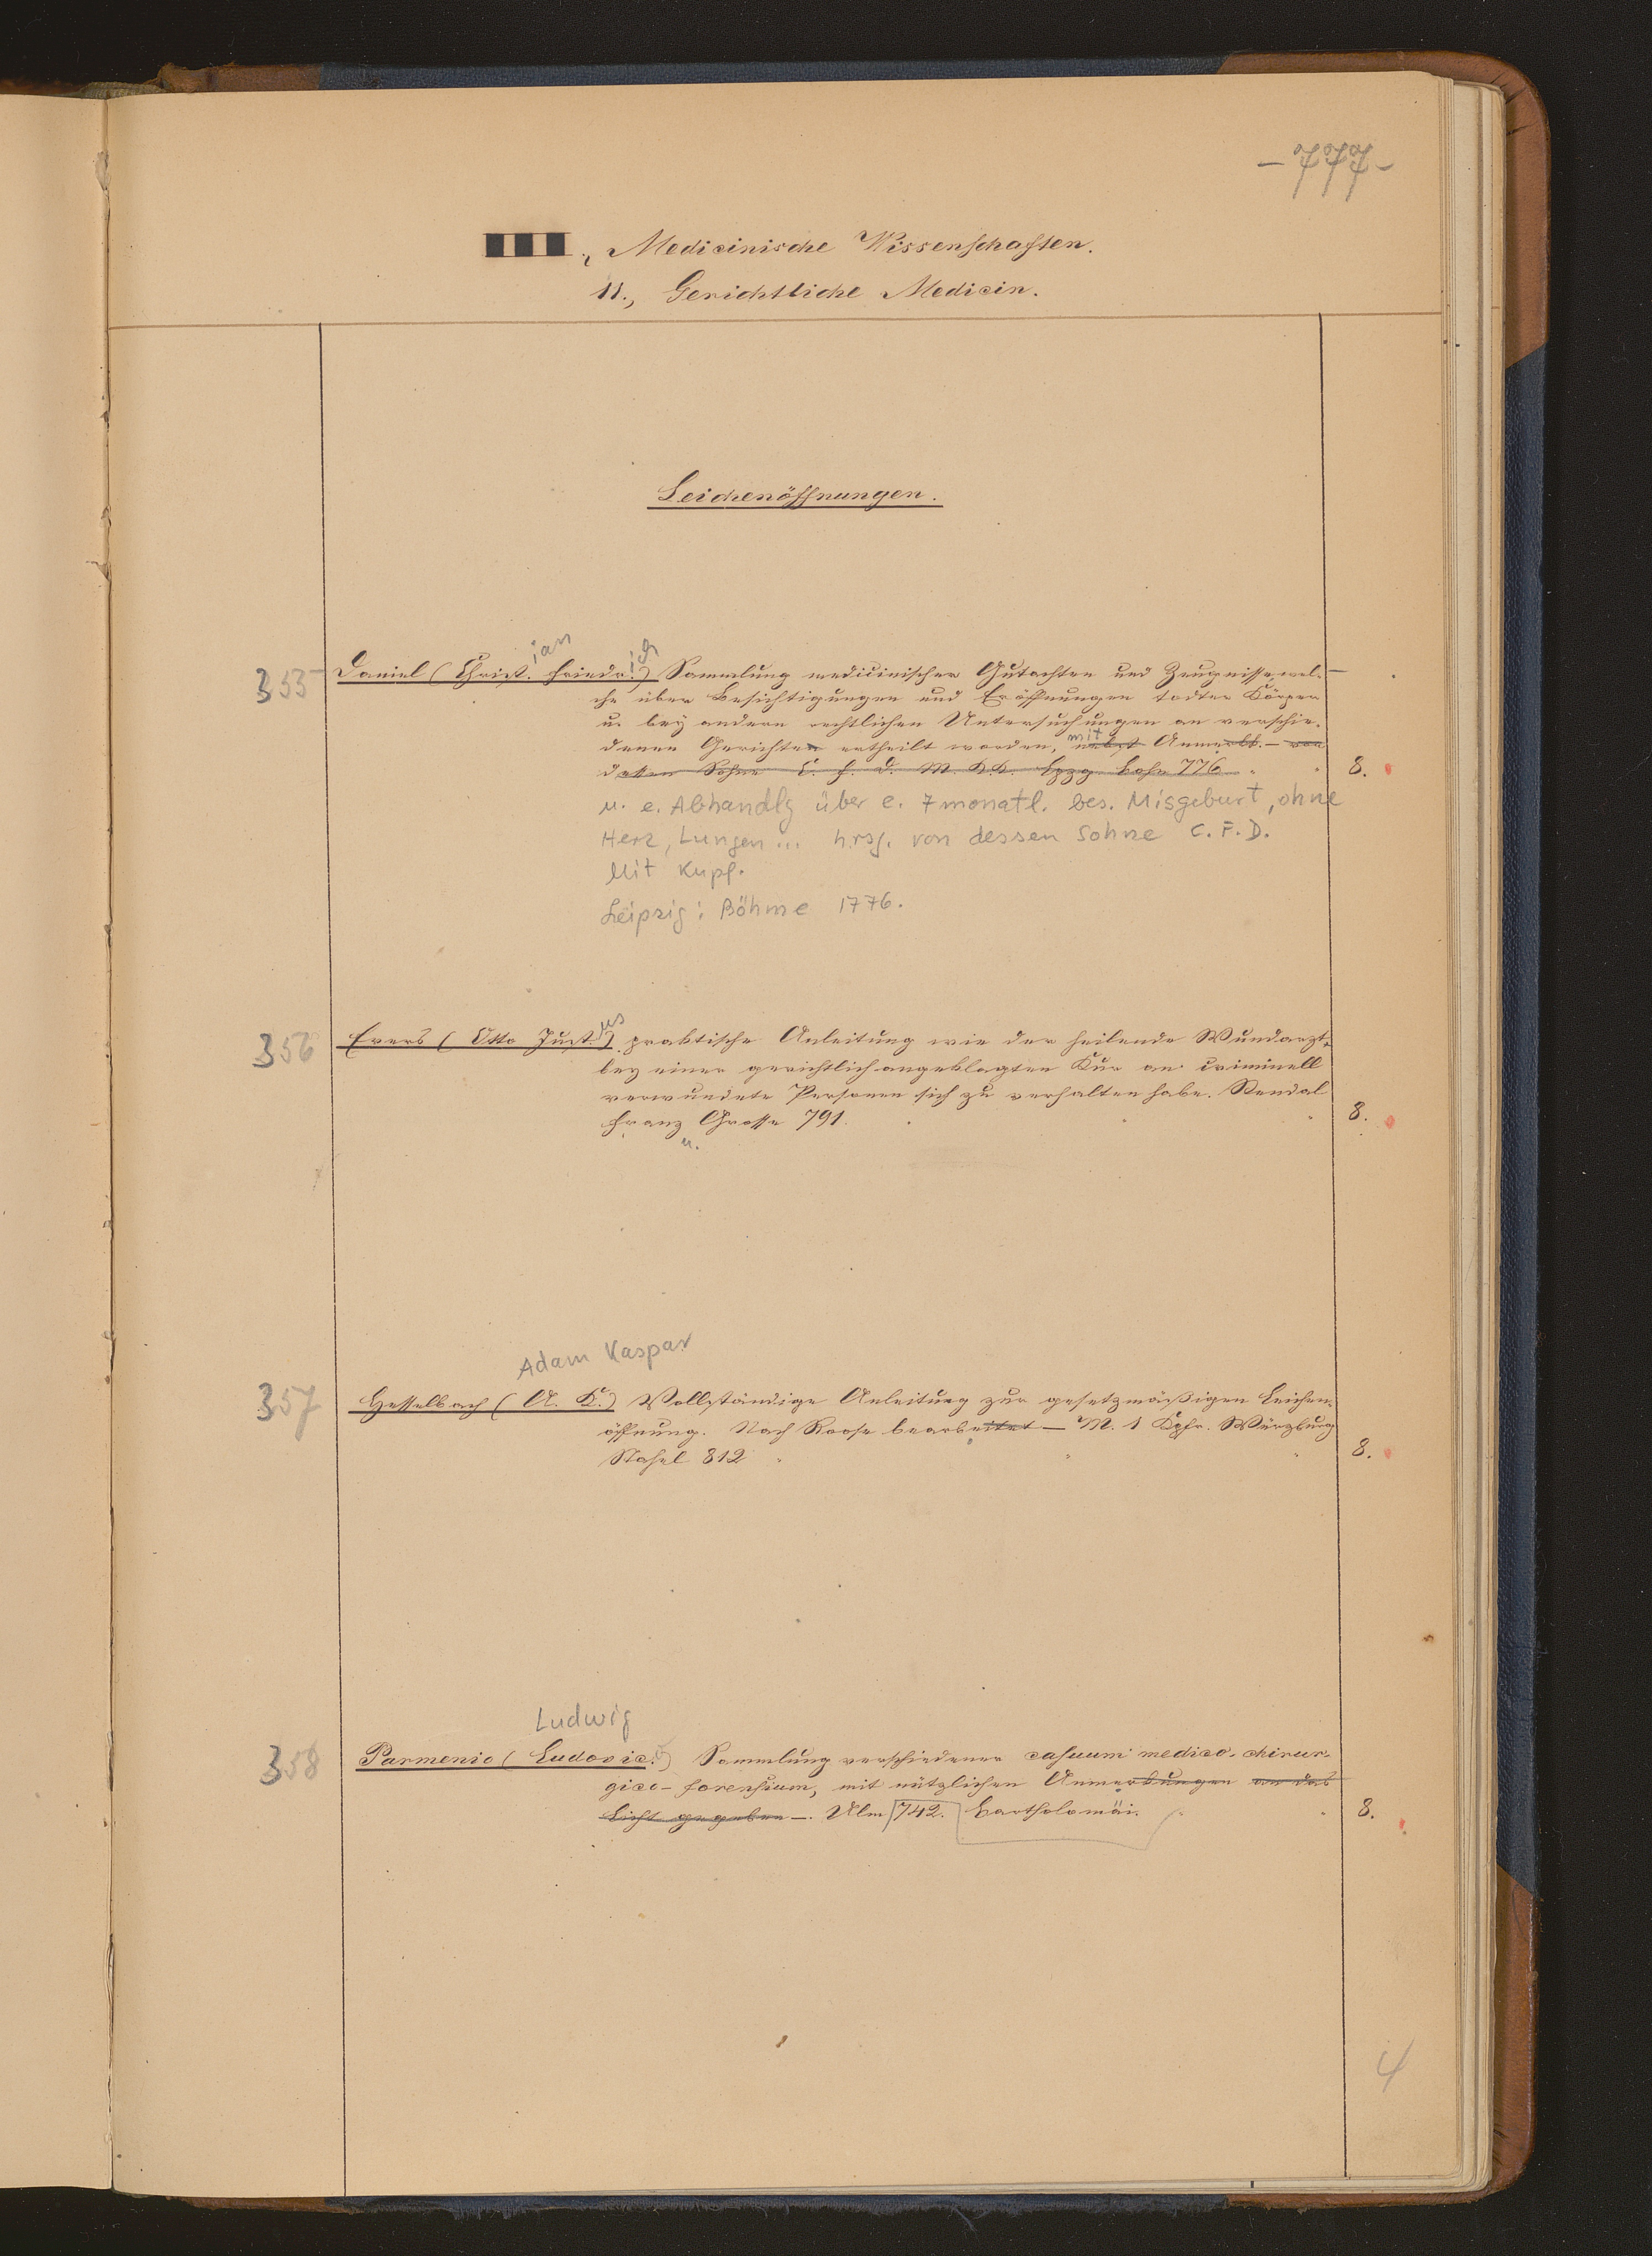 - 777 -
III., Medicinische Wissenschaften.
11., Gerichtliche Medicin.
Leichenöffnungen.
ian ich
355 Daniel (Christ. Friedr.) Sammlung medicinischer Gutachten und Zeugnisse, wel-
che über Besichtigungen und Eröffnungen todter Körper
u. bey andern rechtlichen Untersuchungen an verschie-
mit
denen Gerichten ertheilt worden, nebst Anmerkk. - von
dessen Sohne C. F. D. M. K.K. Lpzg 776 8.
u. e. Abhandlg über e. 7monatl. bes. Misgeburt, ohne
Herz, Lungen ... hrsg. von dessen Sohne C. F. D.
Mit Kupf.
Leipzig: Böhme 1776.
us
356 Evers (Otto Just.) praktische Anleitung wie der heilende Wundarzt
bey einer gerichtlich angeklagten Kur an criminell
verwundete Personen sich zu verhalten habe. Stendal
Franz Grosse 791. 8.
u.
Adam Kaspar
357 Hesselbach (A. K.) Vollständige Anleitung zur gesetzmäßigen Leichen-
öffnung. Nach Roose bearbeitet - M. 1 Kpfr. Würzburg
Stahel 812 8.
Ludwig
358 Parmenio (Ludovic.) Sammlung verschiedener casuum medico-chirur-
gico-forensium, mit nützlichen Anmerkungen an das
Licht gegeben -. Ulm 742. Bartholomäi. 8.
4